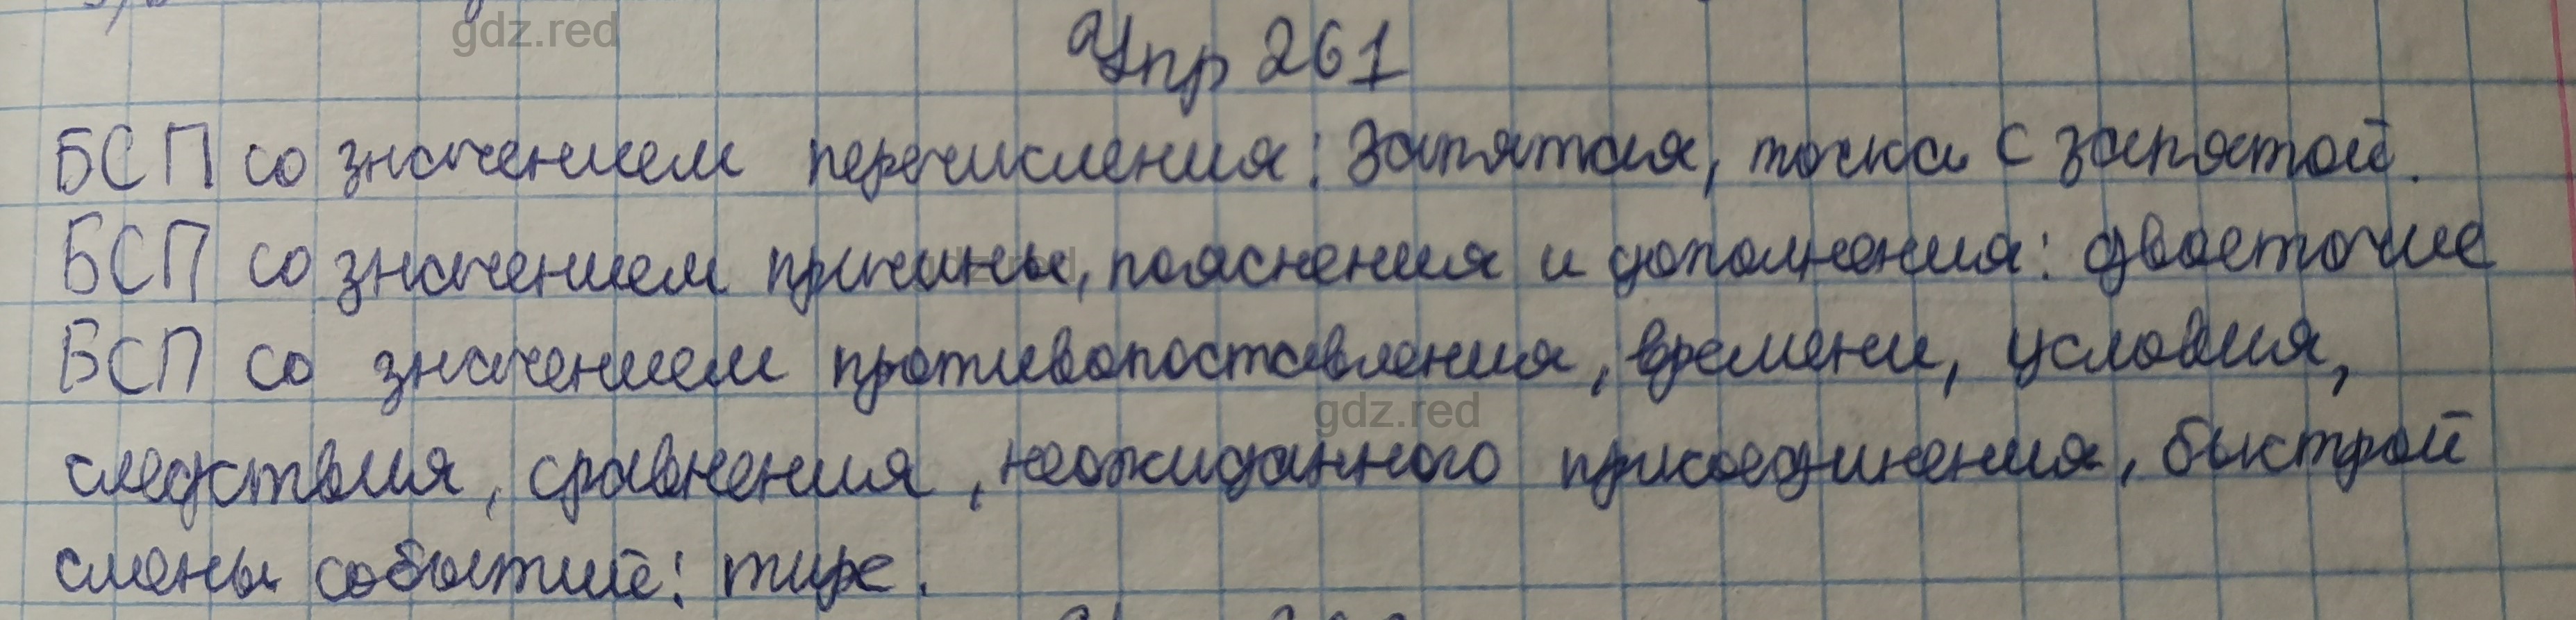 gdz.red
Упр 261
БСП со значением перечисления: Запятая, точка с запятой.
БСП со значением причины, пояснения и дополнения: двоеточие
gdz.red
БСП со значением противопоставления, времени, условия,
gdz.red
следствия, сравнения, неожиданного присоединения, быстрой
смены событий: тире.